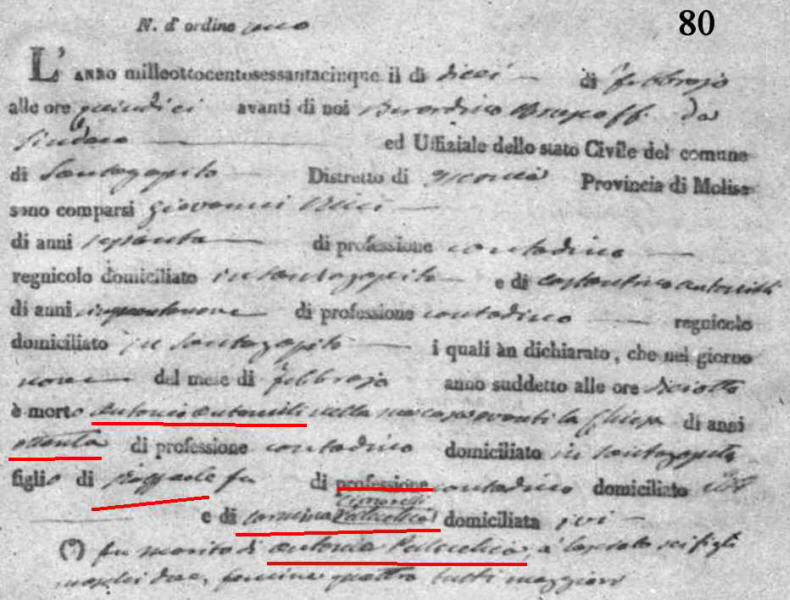 80
N. d'ordine
L'anno milleottocentosessantacinque il di dieci di febbrajo
alle ore quindici avanti di noi
Sindaco ed Uffiziale dello stato Civile del comune
di Santagapito Distretto di Isernia Provincia di Molise
sono comparsi Giovanni Ricci
di anni di professione contadino
regnicolo domiciliato in Santagapito e di Costantino Antonilli
di anni cinquantanove di professione contadino regnicolo
domiciliato in Santagapito i quali àn dichiarato, che nel giorno
nove del mese di febbrajo anno suddetto alle ore diciotto
è morto Antonio Antonilli nella sua casa avanti la Chiesa di anni
ottanta di professione contadino domiciliato in Santagapito
figlio di Raffaele fu di professione contadino domiciliato
e di domiciliata ivi
(*) fu marito di Antonia à lasciato sei figli
maschi due, femine quattro tutti maggiori